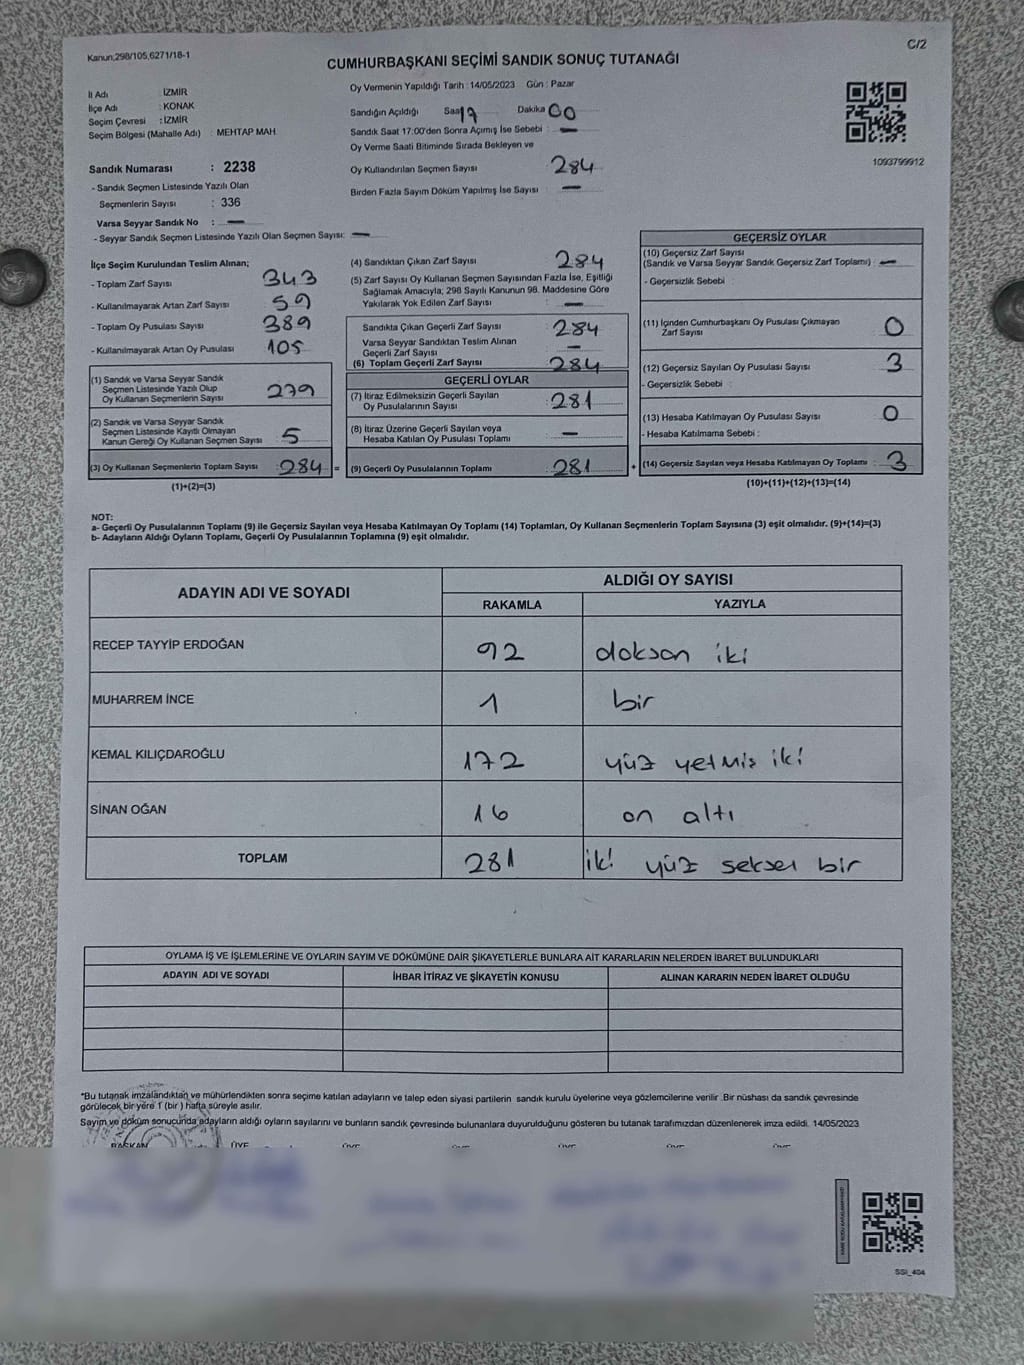 Kanun;298/105,6271/18-1
C/2
CUMHURBAŞKANI SEÇİMİ SANDIK SONUÇ TUTANAĞI
Oy Vermenin Yapıldığı Tarih : 14/05/2023 Gün : Pazar
İl Adı : İZMİR
İlçe Adı : KONAK
Seçim Çevresi : İZMİR
Seçim Bölgesi (Mahalle Adı) : MEHTAP MAH.
Sandığın Açıldığı Saat 17 Dakika 00
Sandık Saat 17:00'den Sonra Açımış İse Sebebi : —
Oy Verme Saati Bitiminde Sırada Bekleyen ve
Oy Kullandırılan Seçmen Sayısı 284
Birden Fazla Sayım Döküm Yapılmış İse Sayısı : —
1093799912
Sandık Numarası : 2238
- Sandık Seçmen Listesinde Yazılı Olan
Seçmenlerin Sayısı : 336
Varsa Seyyar Sandık No : —
- Seyyar Sandık Seçmen Listesinde Yazılı Olan Seçmen Sayısı: —
İlçe Seçim Kurulundan Teslim Alınan;
- Toplam Zarf Sayısı 343
- Kullanılmayarak Artan Zarf Sayısı 59
- Toplam Oy Pusulası Sayısı 389
- Kullanılmayarak Artan Oy Pusulası 105
(1) Sandık ve Varsa Seyyar Sandık
Seçmen Listesinde Yazılı Olup
Oy Kullanan Seçmenlerin Sayısı 279
(2) Sandık ve Varsa Seyyar Sandık
Seçmen Listesinde Kayıtlı Olmayan
Kanun Gereği Oy Kullanan Seçmen Sayısı 5
(3) Oy Kullanan Seçmenlerin Toplam Sayısı : 284 =
(1)+(2)=(3)
(4) Sandıktan Çıkan Zarf Sayısı 284
(5) Zarf Sayısı Oy Kullanan Seçmen Sayısından Fazla İse, Eşitliği
Sağlamak Amacıyla; 298 Sayılı Kanunun 98. Maddesine Göre
Yakılarak Yok Edilen Zarf Sayısı : —
Sandıkta Çıkan Geçerli Zarf Sayısı 284
Varsa Seyyar Sandıktan Teslim Alınan
Geçerli Zarf Sayısı —
(6) Toplam Geçerli Zarf Sayısı 284
GEÇERLİ OYLAR
(7) İtiraz Edilmeksizin Geçerli Sayılan
Oy Pusulalarının Sayısı 281
(8) İtiraz Üzerine Geçerli Sayılan veya
Hesaba Katılan Oy Pusulası Toplamı —
(9) Geçerli Oy Pusulalarının Toplamı : 281 +
GEÇERSİZ OYLAR
(10) Geçersiz Zarf Sayısı
(Sandık ve Varsa Seyyar Sandık Geçersiz Zarf Toplamı) : —
- Geçersizlik Sebebi :
(11) İçinden Cumhurbaşkanı Oy Pusulası Çıkmayan
Zarf Sayısı 0
(12) Geçersiz Sayılan Oy Pusulası Sayısı 3
- Geçersizlik Sebebi :
(13) Hesaba Katılmayan Oy Pusulası Sayısı 0
- Hesaba Katılmama Sebebi :
(14) Geçersiz Sayılan veya Hesaba Katılmayan Oy Toplamı : 3
(10)+(11)+(12)+(13)=(14)
NOT:
a- Geçerli Oy Pusulalarının Toplamı (9) ile Geçersiz Sayılan veya Hesaba Katılmayan Oy Toplamı (14) Toplamları, Oy Kullanan Seçmenlerin Toplam Sayısına (3) eşit olmalıdır. (9)+(14)=(3)
b- Adayların Aldığı Oyların Toplamı, Geçerli Oy Pusulalarının Toplamına (9) eşit olmalıdır.
ADAYIN ADI VE SOYADI ALDIĞI OY SAYISI
RAKAMLA YAZIYLA
RECEP TAYYİP ERDOĞAN 92 doksan iki
MUHARREM İNCE 1 bir
KEMAL KILIÇDAROĞLU 172 yüz yetmis iki
SİNAN OĞAN 16 on altı
TOPLAM 281 iki yüz seksen bir
OYLAMA İŞ VE İŞLEMLERİNE VE OYLARIN SAYIM VE DÖKÜMÜNE DAİR ŞİKAYETLERLE BUNLARA AİT KARARLARIN NELERDEN İBARET BULUNDUKLARI
ADAYIN ADI VE SOYADI İHBAR İTİRAZ VE ŞİKAYETİN KONUSU ALINAN KARARIN NEDEN İBARET OLDUĞU
*Bu tutanak imzalandıktan ve mühürlendikten sonra seçime katılan adayların ve talep eden siyasi partilerin sandık kurulu üyelerine veya gözlemcilerine verilir .Bir nüshası da sandık çevresinde
görülecek bir yere 1 (bir ) hafta süreyle asılır.
Sayım ve döküm sonucunda adayların aldığı oyların sayılarını ve bunların sandık çevresinde bulunanlara duyurulduğunu gösteren bu tutanak tarafımızdan düzenlenerek imza edildi. 14/05/2023
BAŞKAN ÜYE ÜYE ÜYE ÜYE ÜYE ÜYE
SSİ_404